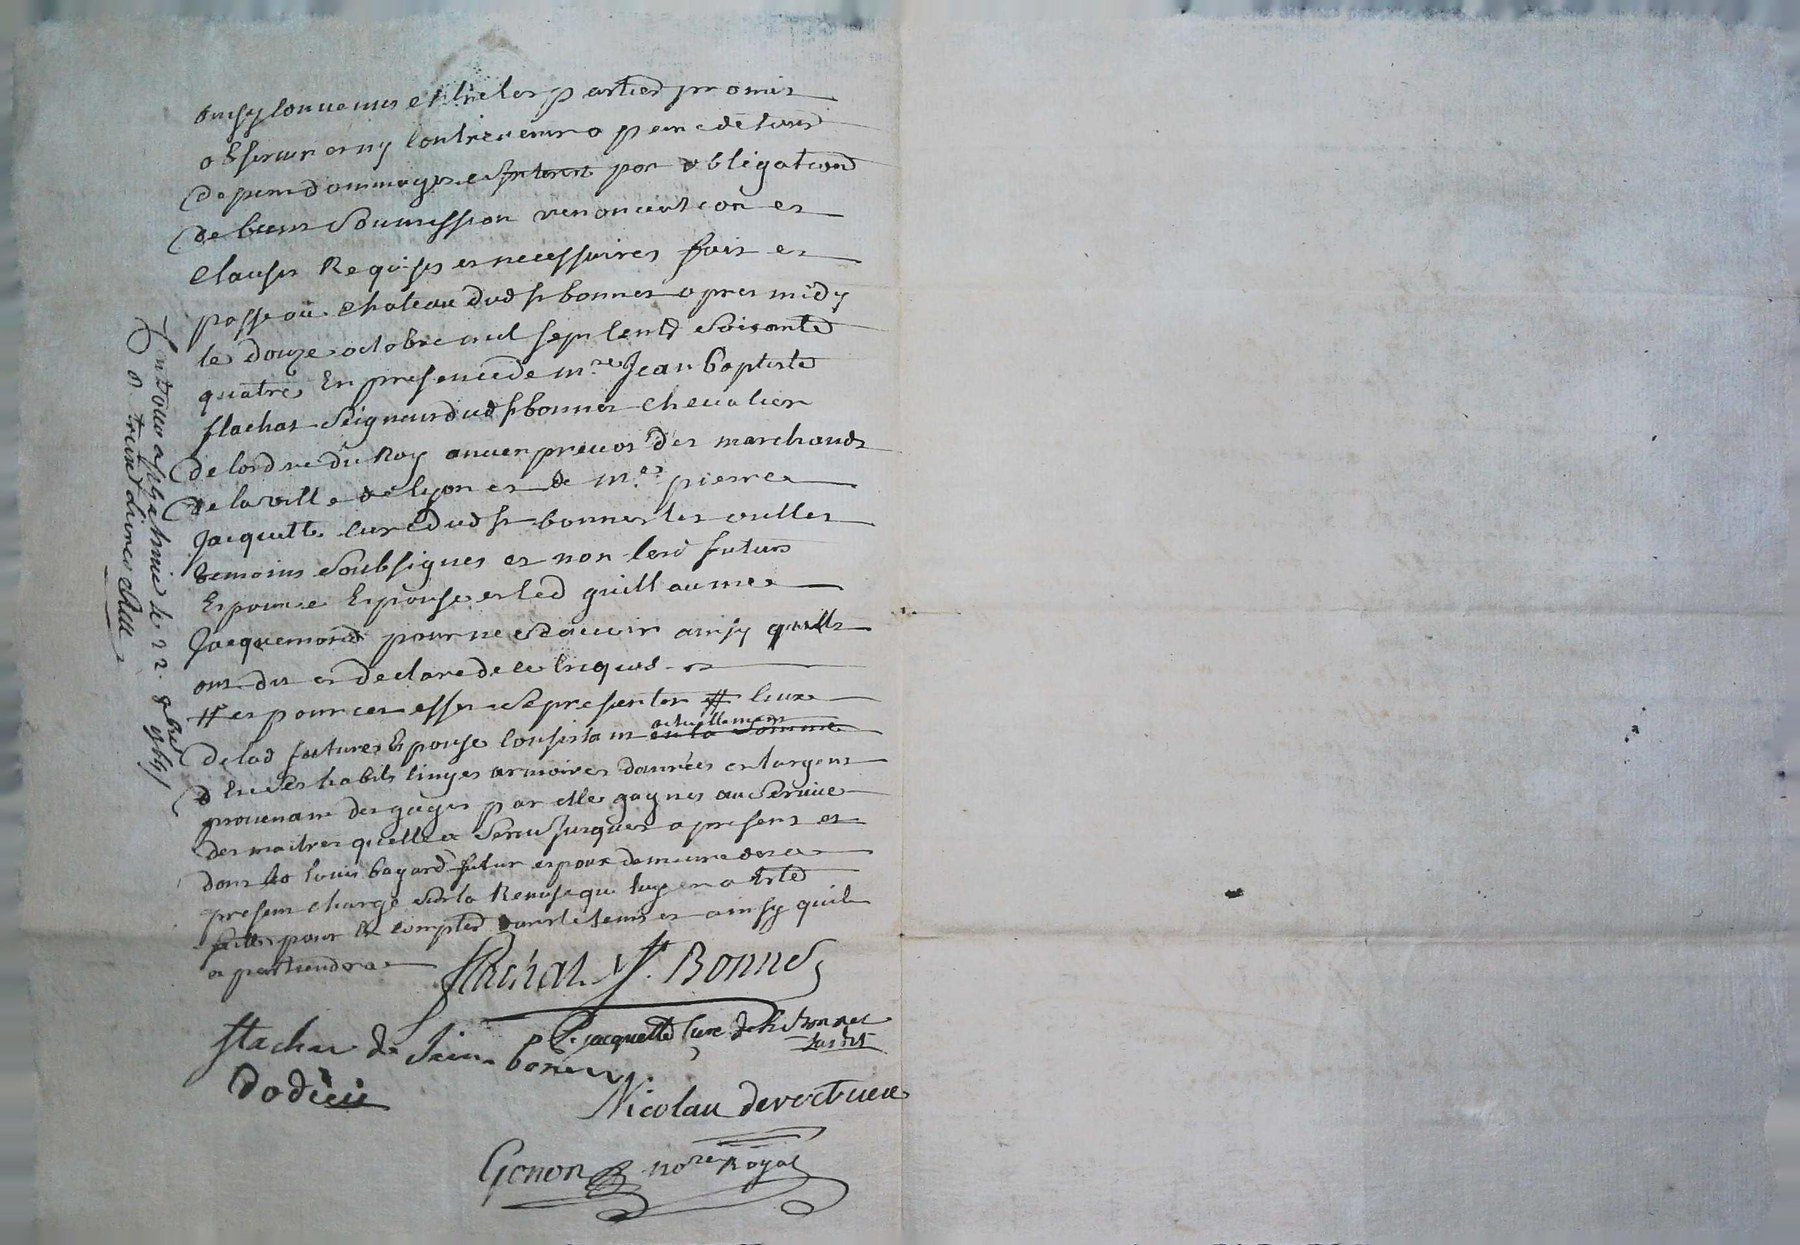 ainsy convenus entre les parties promis
observer et ny contrevenir a peine de tous
depens dommages et interest par obligations
de biens soumission renonciation et
clauses Requises et necessaires fait et
passé au chateau dud St bonnet apres midy
le douze octobre mil sept cents soixante
quatre En presence de mre Jean Baptiste
flachat Seigneur dud St bonnet chevalier
de lordre du Roy ancien prevot des marchands
de la ville de lyon et de mre pierre
Jacquette curé dud St bonnet les oulles
temoins soubsignes et non lesd futurs
Epoux et Epouse et led guillaume
Jacquemond pour ne scavoir ainsy quils
ont dit et declaré de ce enquis
# et pour cet effet se presenter # ceux
de lad future Epouse consistant actuellement en la somme
En ses habits linges armoires danrées et argent
provenant des gages par elle gagnes au Service
des maitres quelle a servi jusques a present et
dont led louis bayard futur epoux demeure des a
present chargé sur la Remise qui luy en a Eté
faitte pour en compter ou restituer et ainsy quil
apartiendra
flachat St. Bonnet
P. jacquette curé de St bonnet
Les dits
flachat de Saint bonnet
dodieu
Nicolau
Genon nore Royal
le 22. 8bre 1764
treize livres